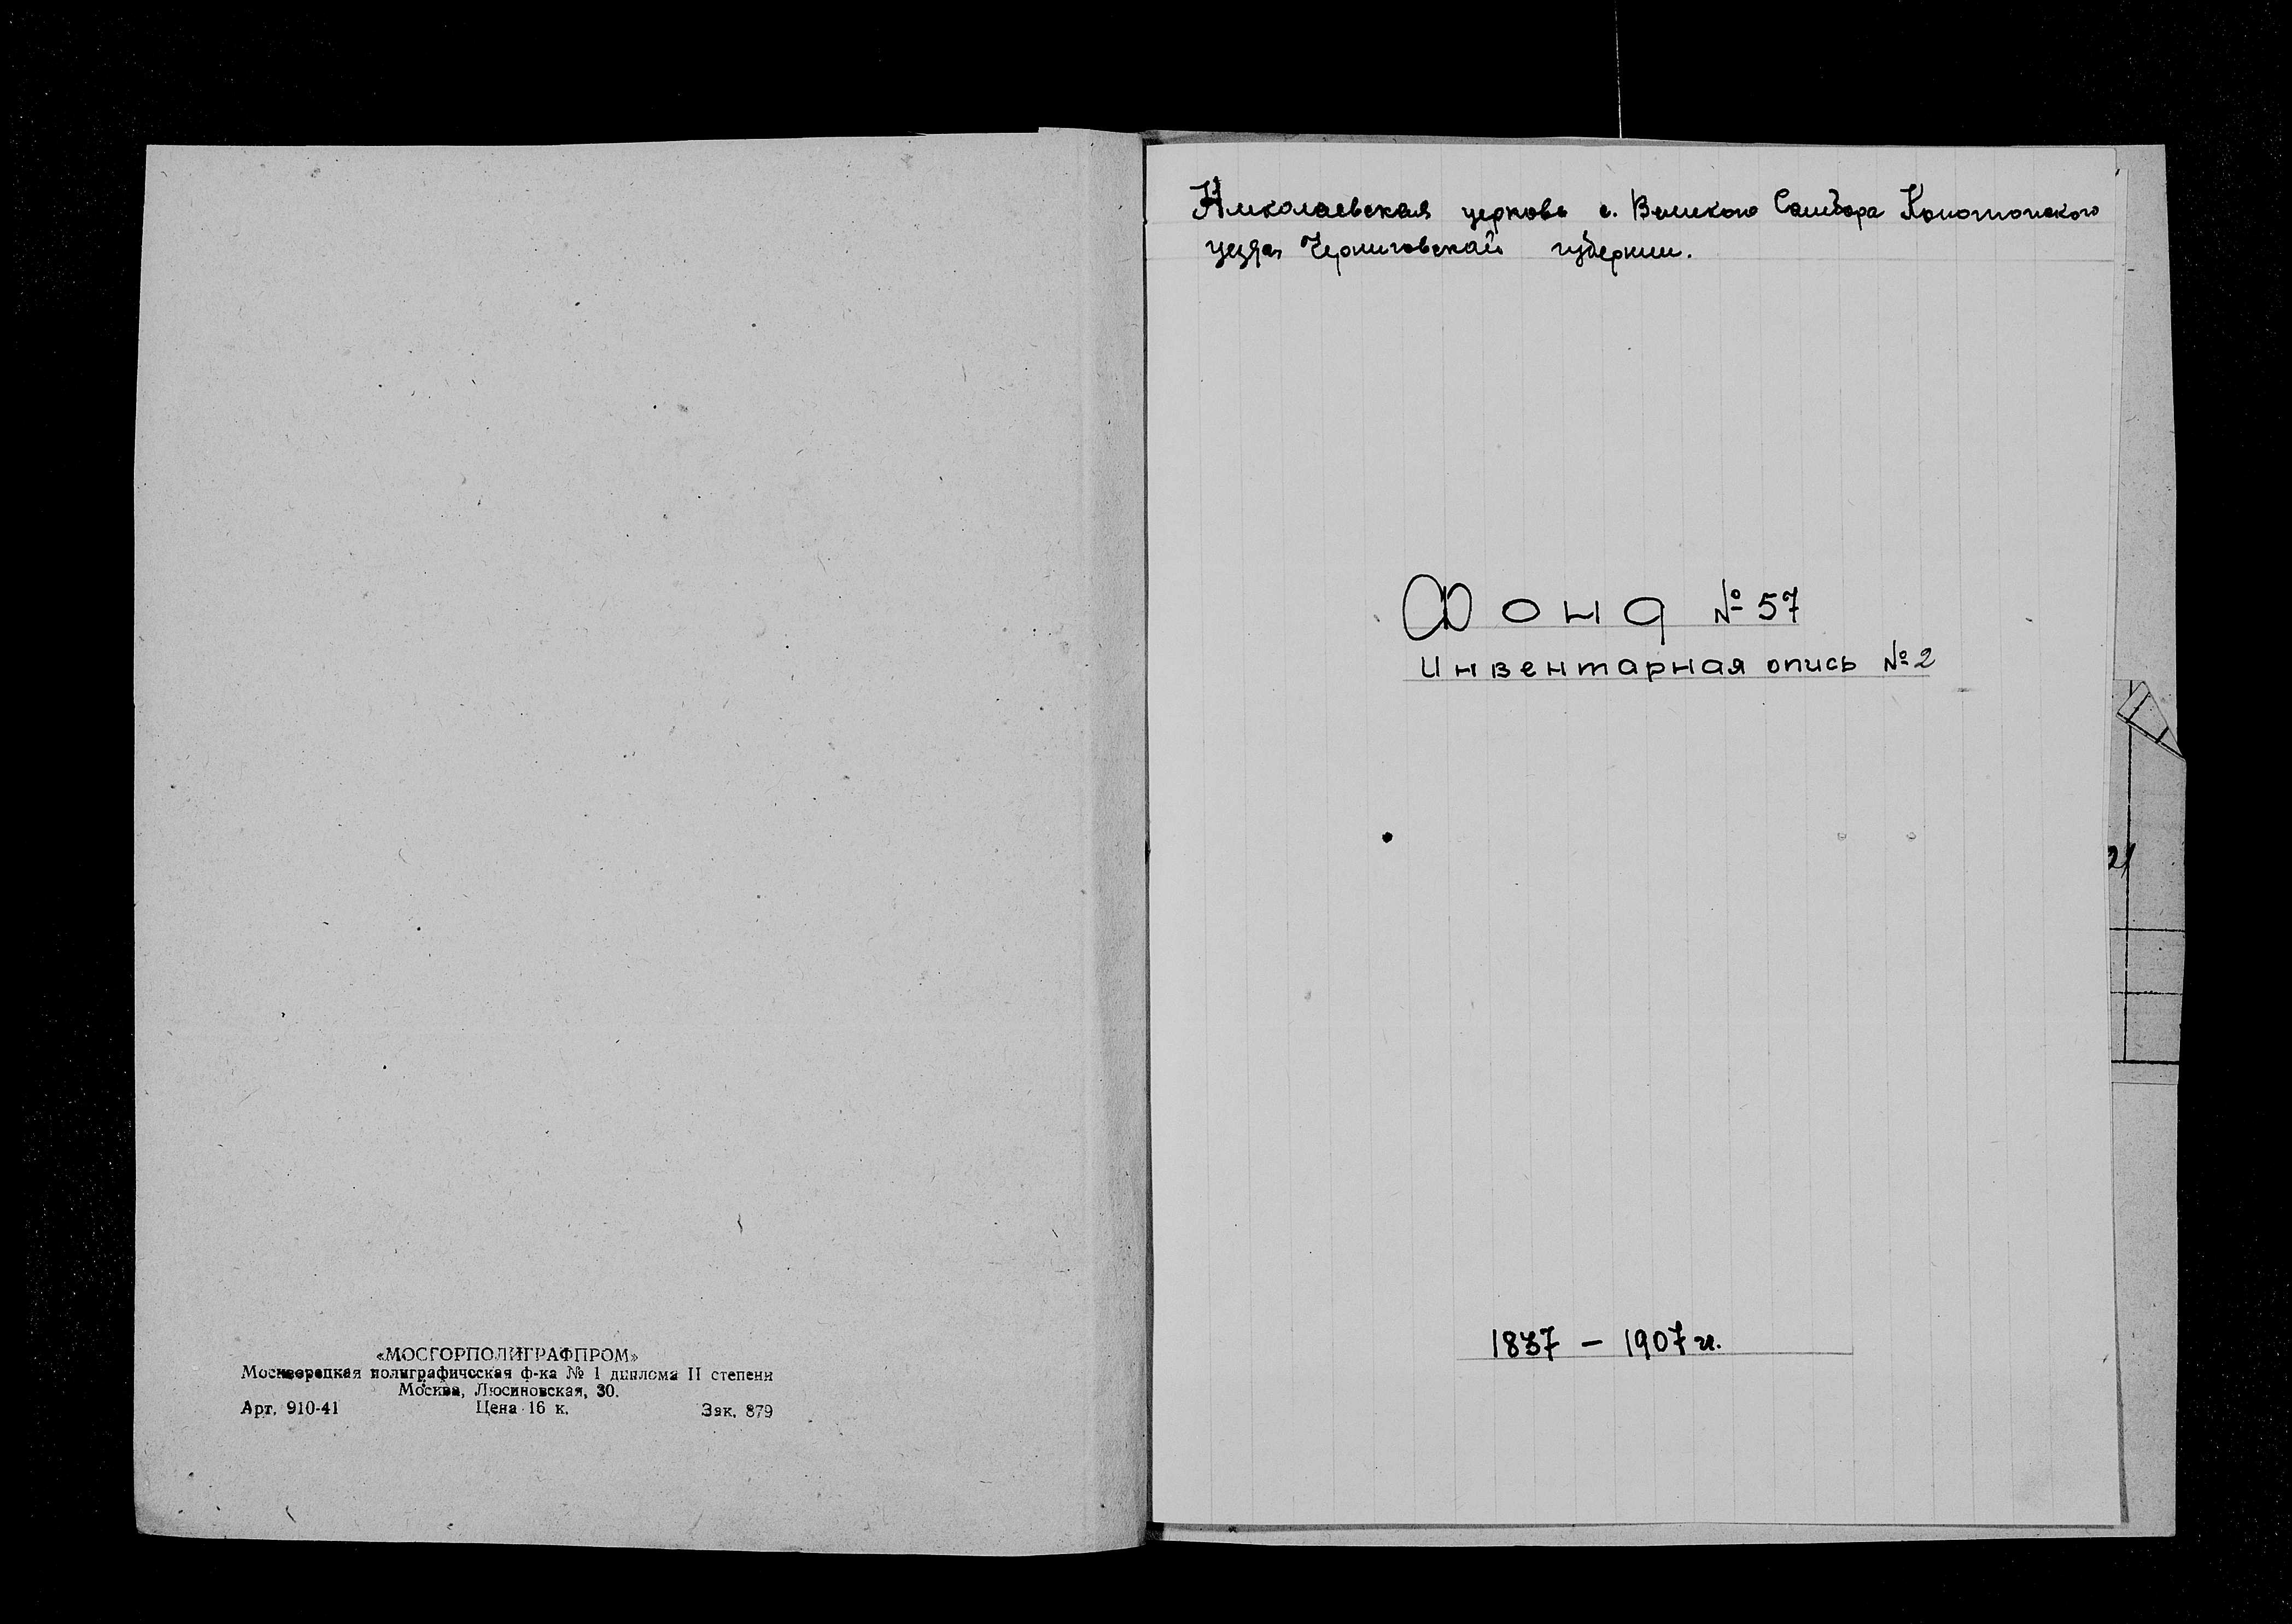 «МОСГОРПОЛИГРАФПРОМ»
Москворецкая полиграфическая ф-ка № 1 диплома II степени
Москва, Люсиновская, 30.
Арт. 910-41 Цена 16 к. Зак. 879
Николаевская церковь с. Великого Самбора Конотопского
уезда Черниговской губернии.
Фонд № 57
Инвентарная опись № 2
1837 – 1907 гг.